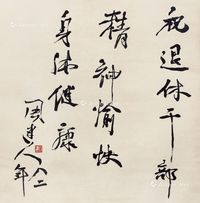 祝退休干部
精神愉快
身体健康
周建人
八二年